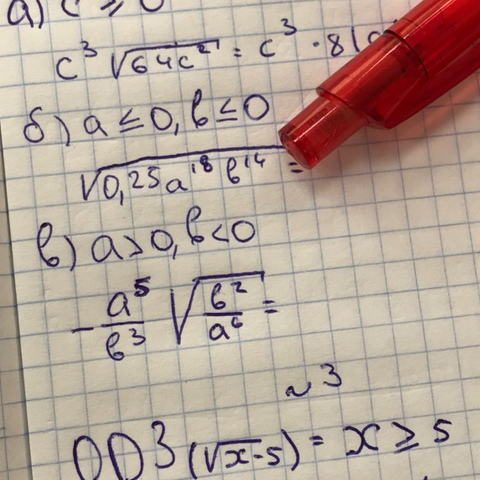 а) c ≥ 0
c³ √64c² = c³ · 8|c
б) a ≤ 0, b ≤ 0
√0,25a¹⁸b¹⁴ =
в) a > 0, b < 0
- a⁵/b³ √b²/a⁶ =
~3
ОДЗ (√x-5) = x ≥ 5